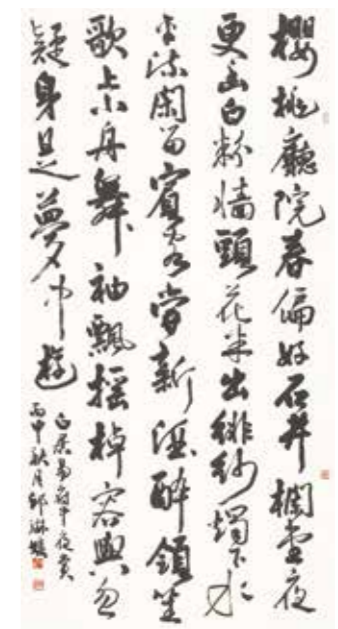 櫻桃廳院春偏好石井欄堂夜
更幽白粉牆頭花半出緋紗燭下水
平流閑留賓客嘗新酒醉領笙
歌上小舟舞袖飄搖棹容與忽
疑身是夢中遊
白居易府中夜賞
丙申秋月鄒琳